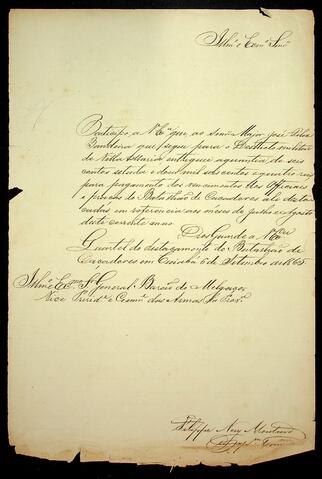 Illmo e Exmo Senr
Participo, a V. Exa que, ao Senr Major José
Bandeira que segue para o Destricto militar
de Villa Maria entreguei a quantia de seis
contos setenta e dous mil seis centos e quatro reis
para pagamento dos vencimentos dos Officiaes
e praças do Batalhão de Caçadores ali desta
cadas em referencia aos meses de Julho e Agosto
deste corrente anno.
Deos Guarde a V. Exa
Quartel do destacamento do Batalhão de
Caçadores em Cuiabá 6 de Setembro de 1865
Illmo e Exmo Sr General Barão de Melgaço
Vice Preside e Comme das Armas da Prova
Felippe Nery Monteiro